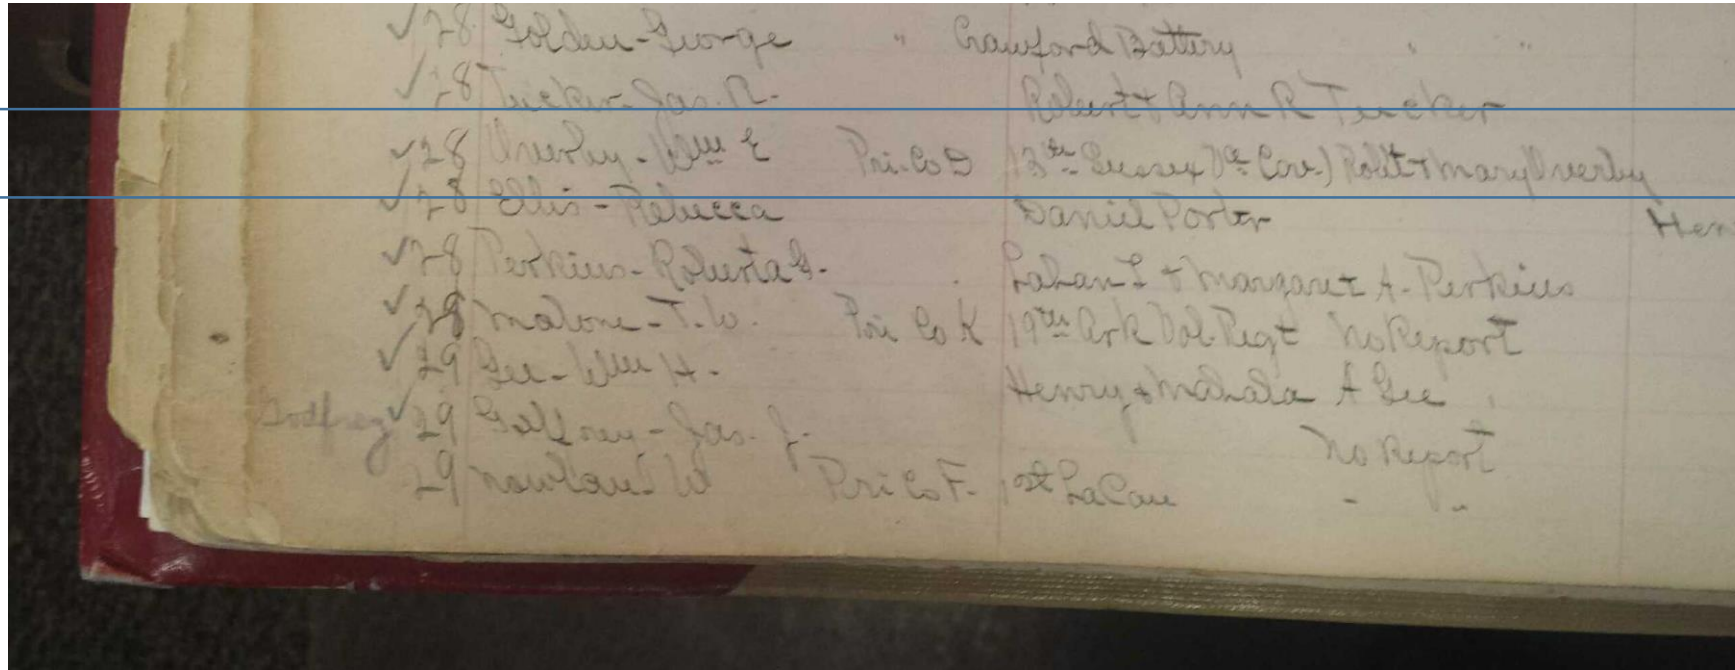 ✓28 Golden - George " Crawford Battery " "
✓28 Tucker - Jas. R. Robert & Ann R Tucker
✓28 Overby - Wm E Pri. Co D 13th Sussex Va Cav.) Robt & Mary Overby
✓28 Ellis - Rebecca Daniel Porter Hen
✓28 Perkins - Roberta G. Laban L & Margaret A. Perkins
✓28 Malone - T. W. Pri Co K 19th Ark Vol. Regt No Report
✓29 Gee - Wm H. Henry & Mahala A Gee
Godfrey ✓29 Goffrey - Jas. J. No Report
29 W Pri Co F. 1st La Cav " "